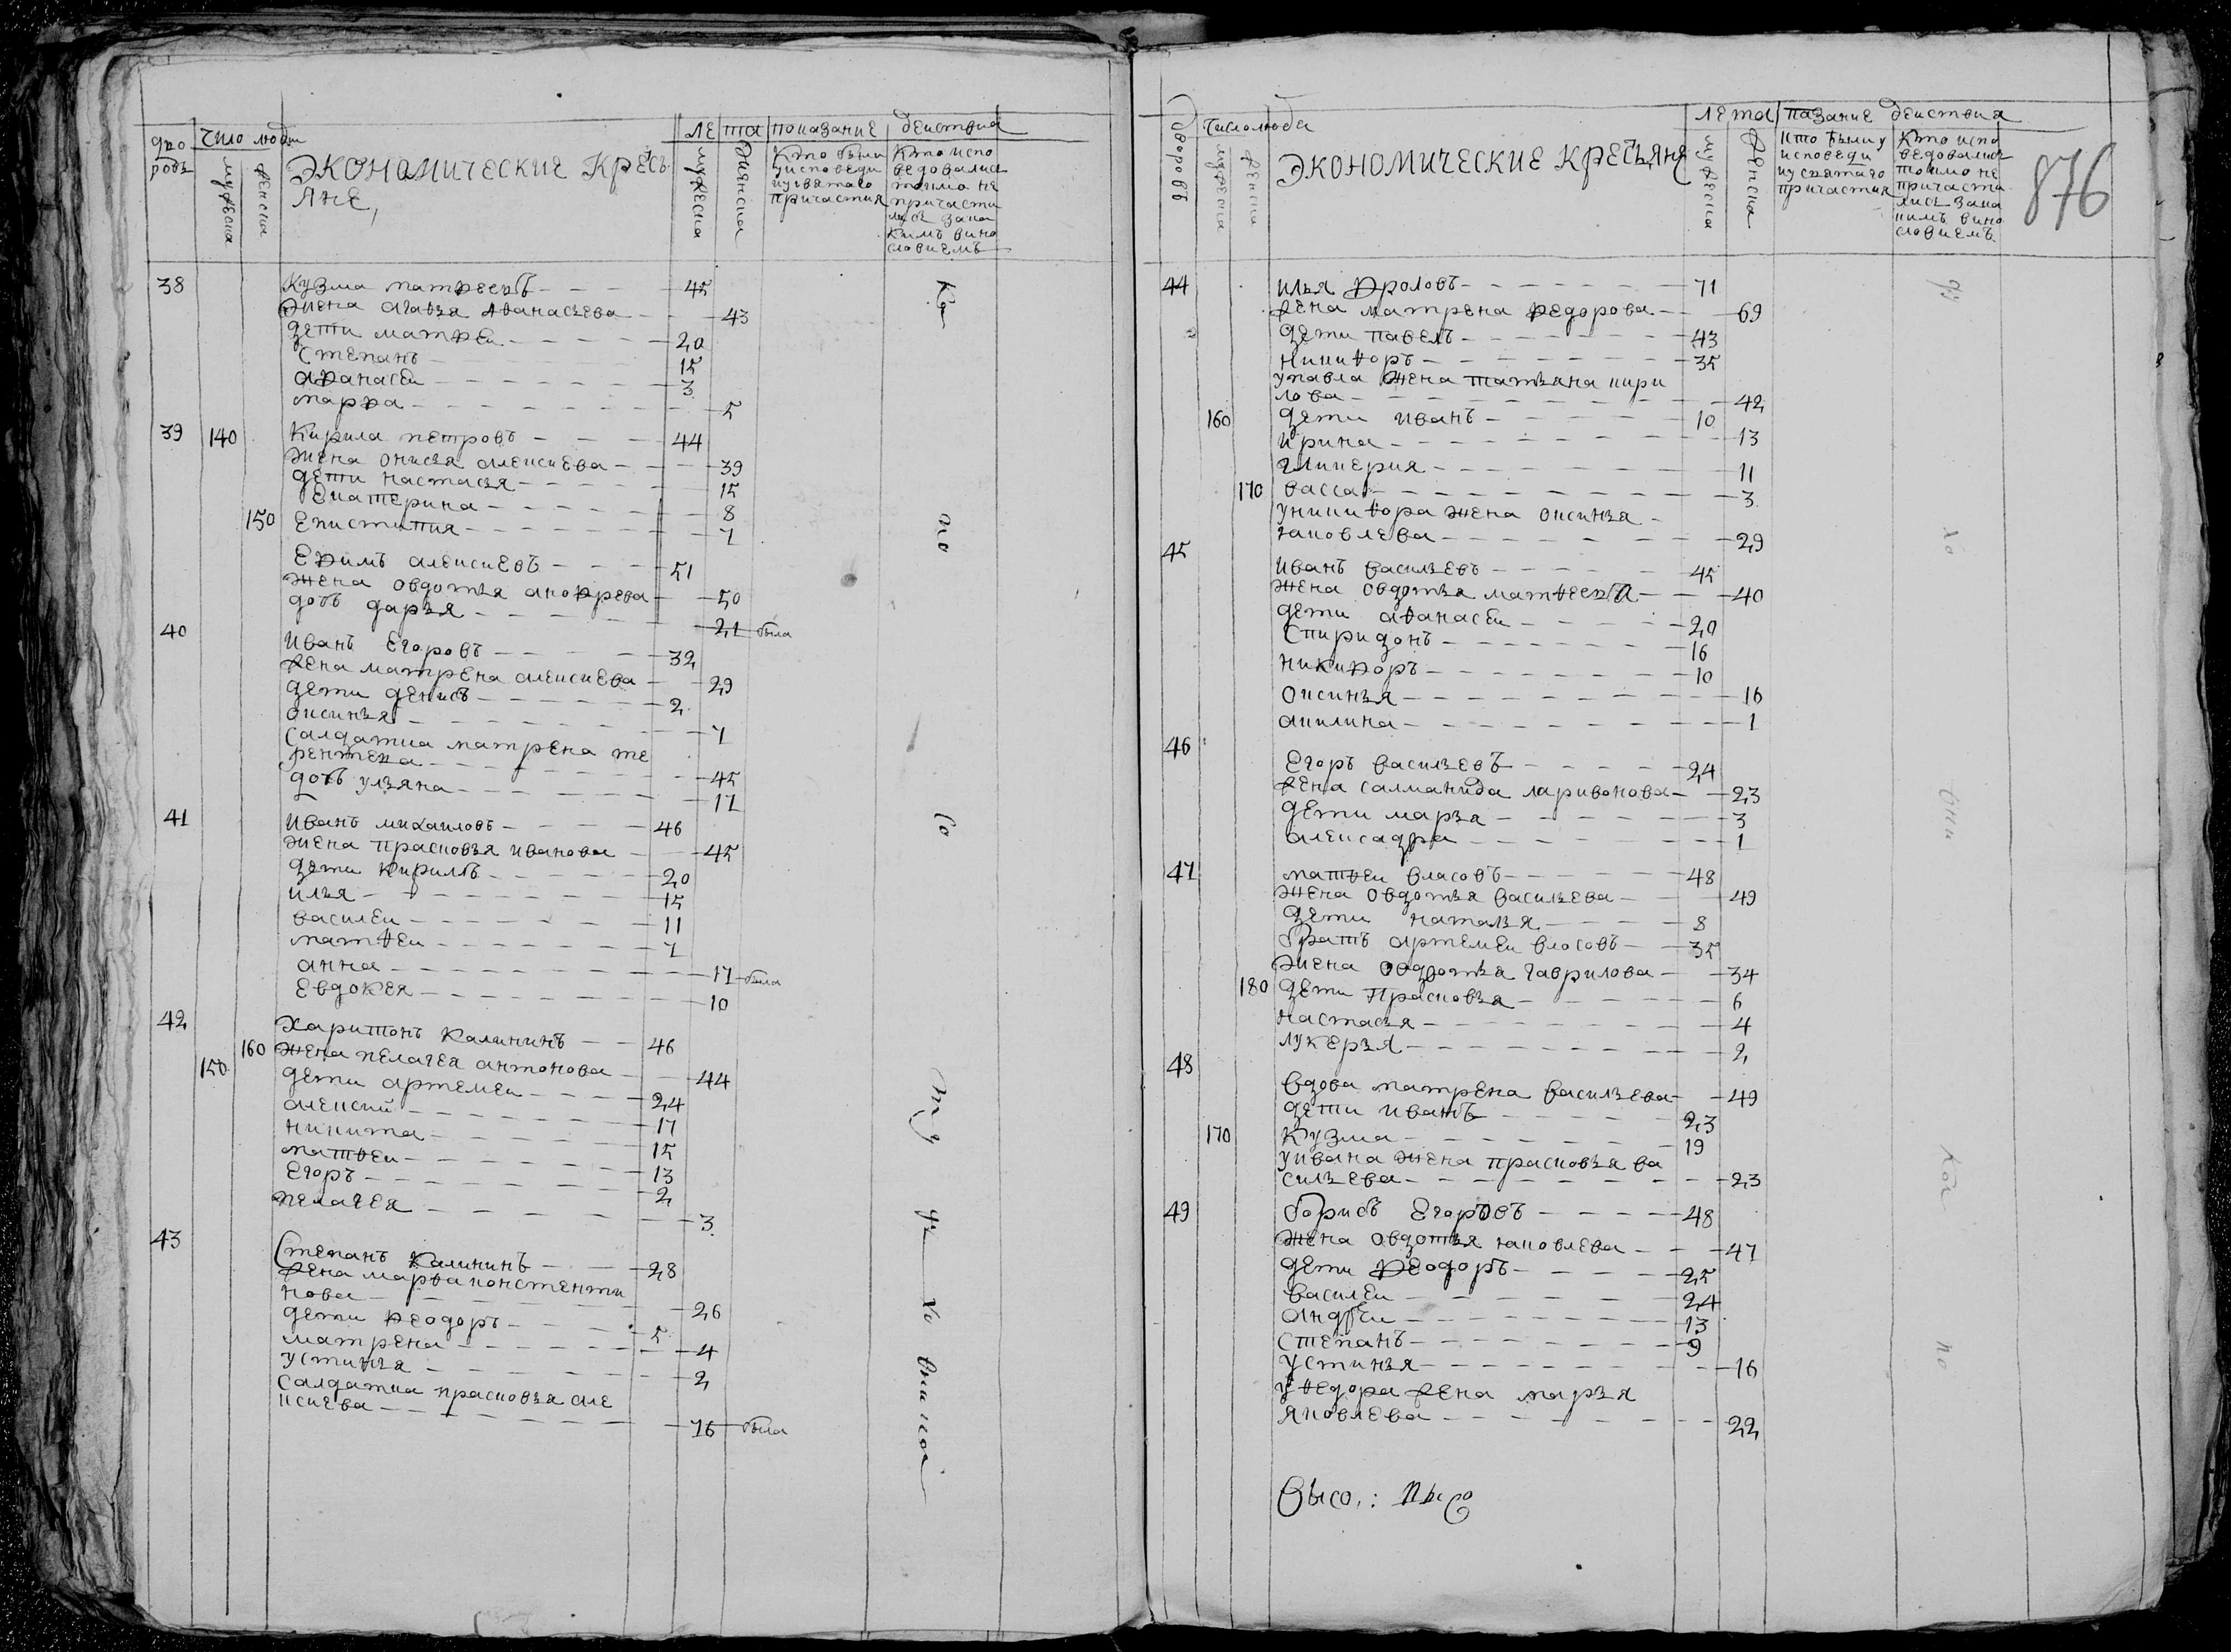 дво
ровъ
Число люди
мужеска
женска
ЭКОНОМИЧЕСКИЕ КРЕСЬ
ЯНЕ,
ЛЕ та
мужеска
женска
показание действиа
Кто были
уисповеди
иусвятаго
причастия
Кто испо
ведовалис
токмо не
причасти
лись зака
кимъ вино
словиемъ
38 Кузма матфеевъ 45
жена агафья Афанасьева 43
дети матфеи 20
степанъ 15
афанасеи 3
марфа 5
39 140 Кирила петровъ 44
жена онисья алексиева 39
дети настасья 15
Екатерина 8
150 Епистимия 7
Ефимъ алексиевъ 51
жена овдотья анофрева 50
дочь дарья 21 была
40
Иванъ Егоровъ 32
жена матрена алексиева 29
дети денисъ 2
оксинья 7
салдатка матрена те
рентева 45
дочь ульяна 17
41 Иванъ михаиловъ 46
жена прасковья иванова 45
дети Кирилъ 20
илья 15
василеи 11
матвеи 7
анна 17 была
Евдокея 10
42 Харитонъ Калининъ 46
160 жена пелагея антонова 44
150 дети артемеи 24
алексий 17
никита 15
матвеи 13
Егоръ 2
пелагея 3
43
Степанъ Калининъ 28
жена марфа констенти
нова 26
дети феодоръ 5
матрена 4
устинья 2
Салдатка прасковья але
ксиева 76 была
по
со
ту
дворовъ
Число люда
мужеска
женска
ЭКОНОМИЧЕСКИЕ КРЕСЪЯНЕ
ЛЕ та
мужеска
женска
пазание действия
кто были у
исповеди
иусвятаго
причастия
Кто испо
ведовалис
токмо не
причасти
лись зака
кимъ вино
словиемъ
876
44 илья фроловъ 71
жена матрена федорова 69
дети павелъ 43
никифоръ 35
упавла жена татьяна кири
лова 42
160 дети иванъ 10
ирина 13
гликерия 11
170 васса 3
уникифора жена оксинья
яковлева 29
45
Иванъ васильевъ 45
жена овдотья матфеева 40
дети афанасеи 20
Спиридонъ 16
никифоръ 10
оксинья 16
акилина 1
46
Егоръ васильевъ 24
жена салманида ларивонова 23
дети марья 3
алексадра 1
47 матвеи власовъ 48
жена овдотья васильева 49
дети наталья 8
братъ артемеи власовъ 35
жена овдотья гаврилова 34
180 дети прасковья 6
настасья 4
лукерья 2
48
вдова матрена васильева 49
дети иванъ 23
170 Кузма 19
уивана жена прасковья ва
сильева 23
49 борисъ Егоровъ 48
жена овдотья яковлева 47
дети феодоръ 25
василеи 24
андреи 13
степанъ 9
устинья 16
уфедора жена марья
яковлева 22